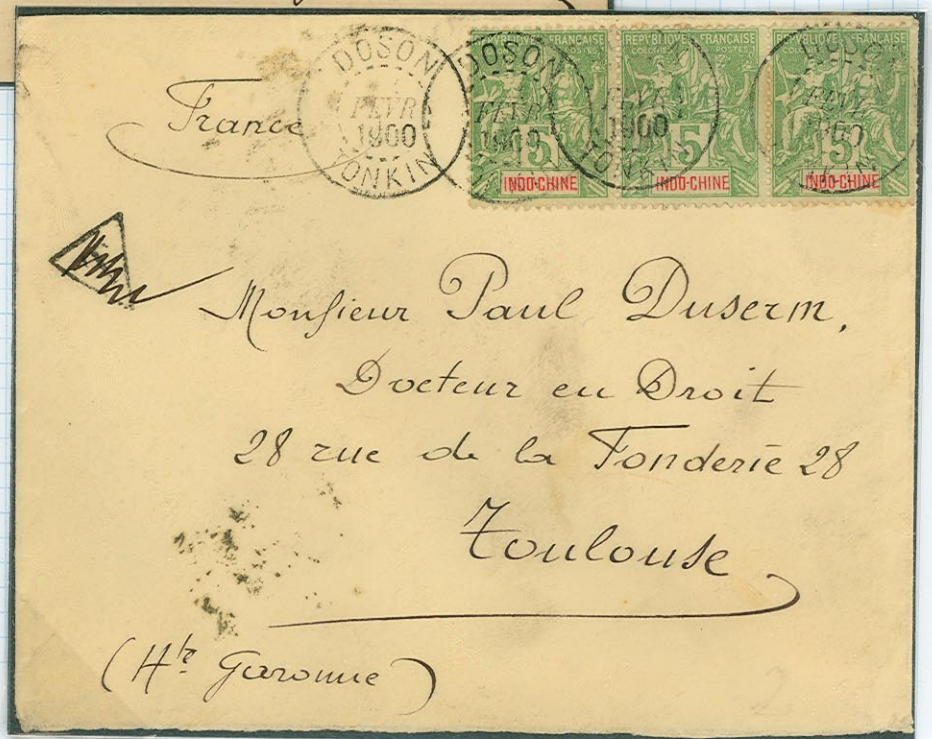 DOSON
FEVR
1900
TONKIN
DOSON
FEVR
1900
FEVR
1900
TONKIN
REPUBLIQUE FRANÇAISE
COLONIES POSTES
5
INDO-CHINE
REPUBLIQUE FRANÇAISE
COLONIES POSTES
5
INDO-CHINE
REPUBLIQUE FRANÇAISE
COLONIES POSTES
5
INDO-CHINE
France
Monsieur Paul Duserm,
Docteur en Droit
28 rue de la Fonderie 28
Toulouse
(Hte Garonne)
2